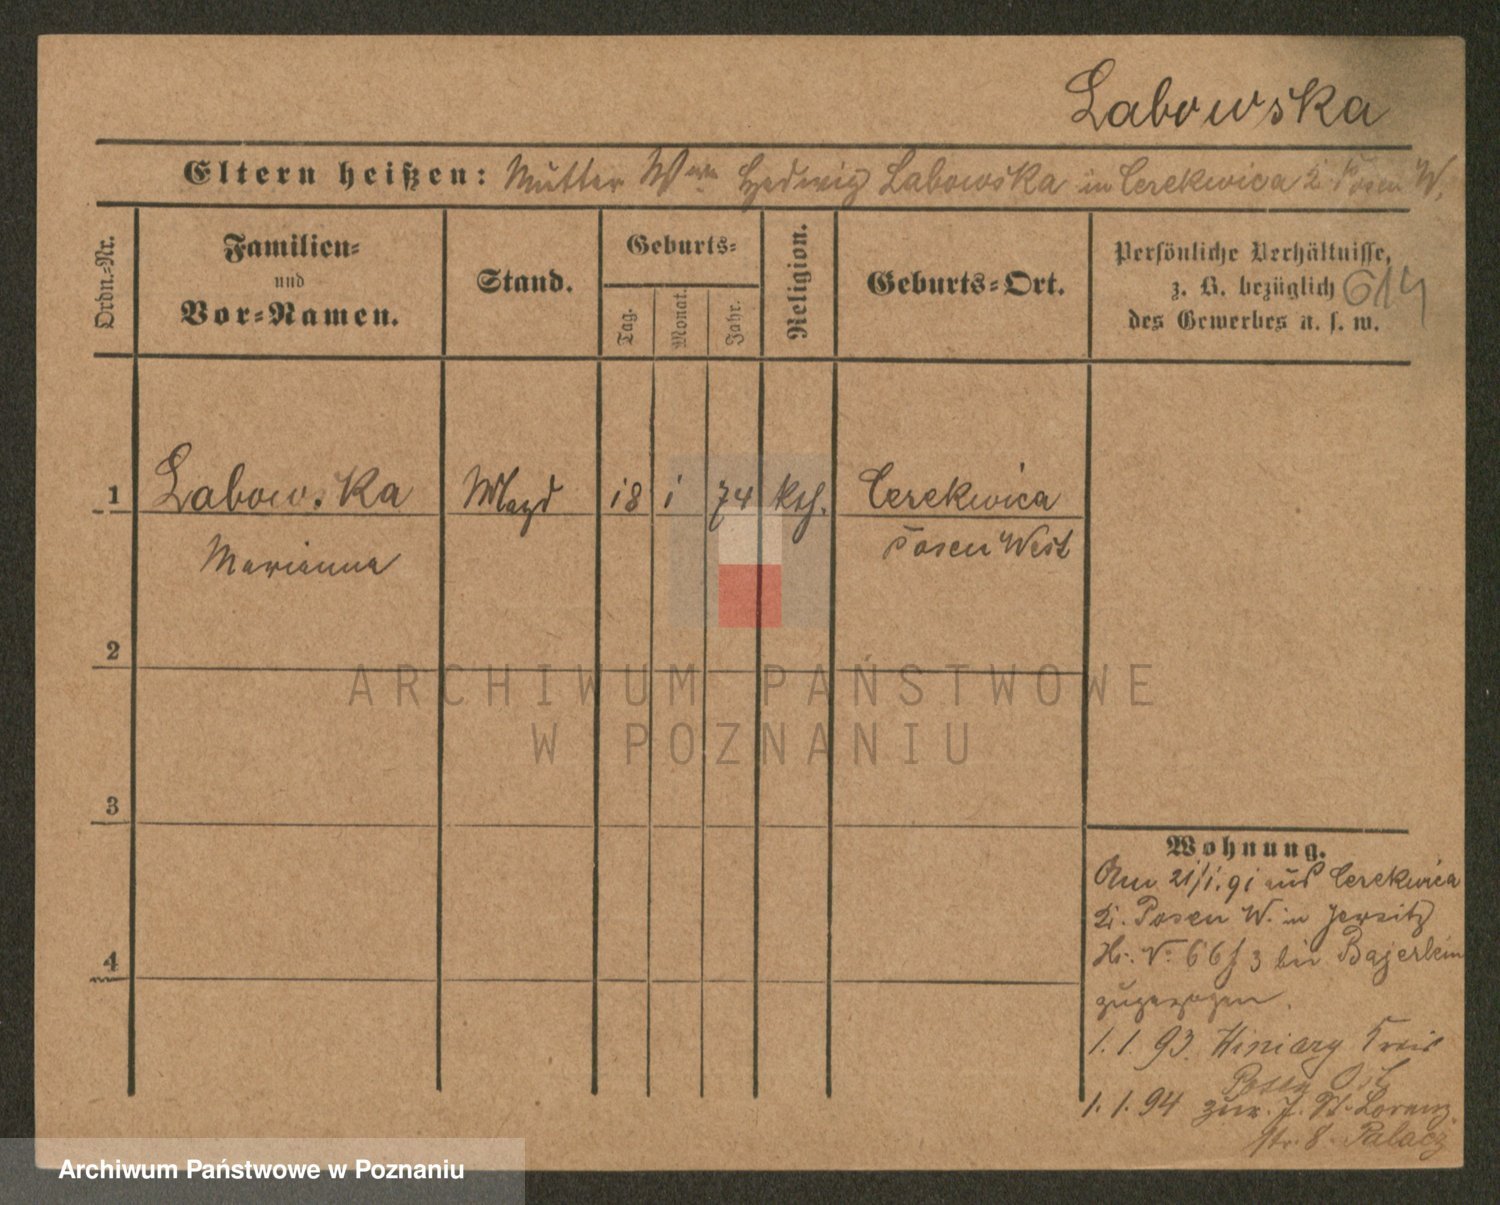 Labowska
Eltern heißen: Mutter Wwe Hedwig Labowska in Cerekwica K. Posen W.
Ordn.-Nr.
Familien-
und
Vor-Namen.
Stand.
Geburts-
Tag.
Monat.
Jahr.
Religion.
Geburts-Ort.
Persönliche Verhältnisse,
z. B. bezüglich
des Gewerbes u. s. w.
614
1 Labowska Magd 18 1 74 kth. Cerekwica
Marianna Posen West
2
3
4
Wohnung.
Am 21/1.91 aus Cerekwica
K. Posen W. in Jersitz
No 66/3 bei Bajerlein
zugezogen.
1.1.93. Winiary Kreis
Posen Ost
1.1.94 zur. J. St. Lorenz
str. 8. Palacz
ARCHIWUM PAŃSTWOWE
W POZNANIU
Archiwum Państwowe w Poznaniu